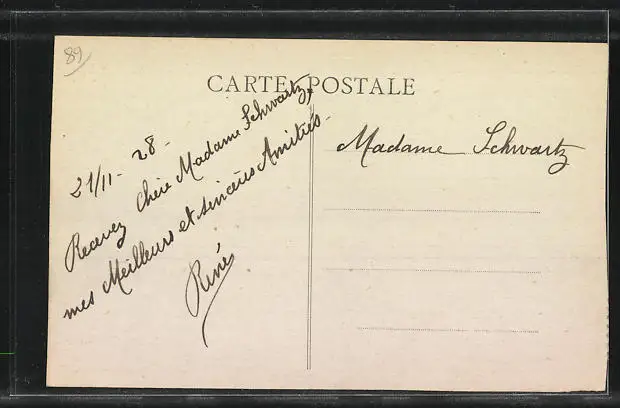 89
CARTE POSTALE
21/11 - 28 -
Recevez Chère Madame Schwartz,
mes Meilleurs et sincères Amitiés -
René
Madame Schwartz